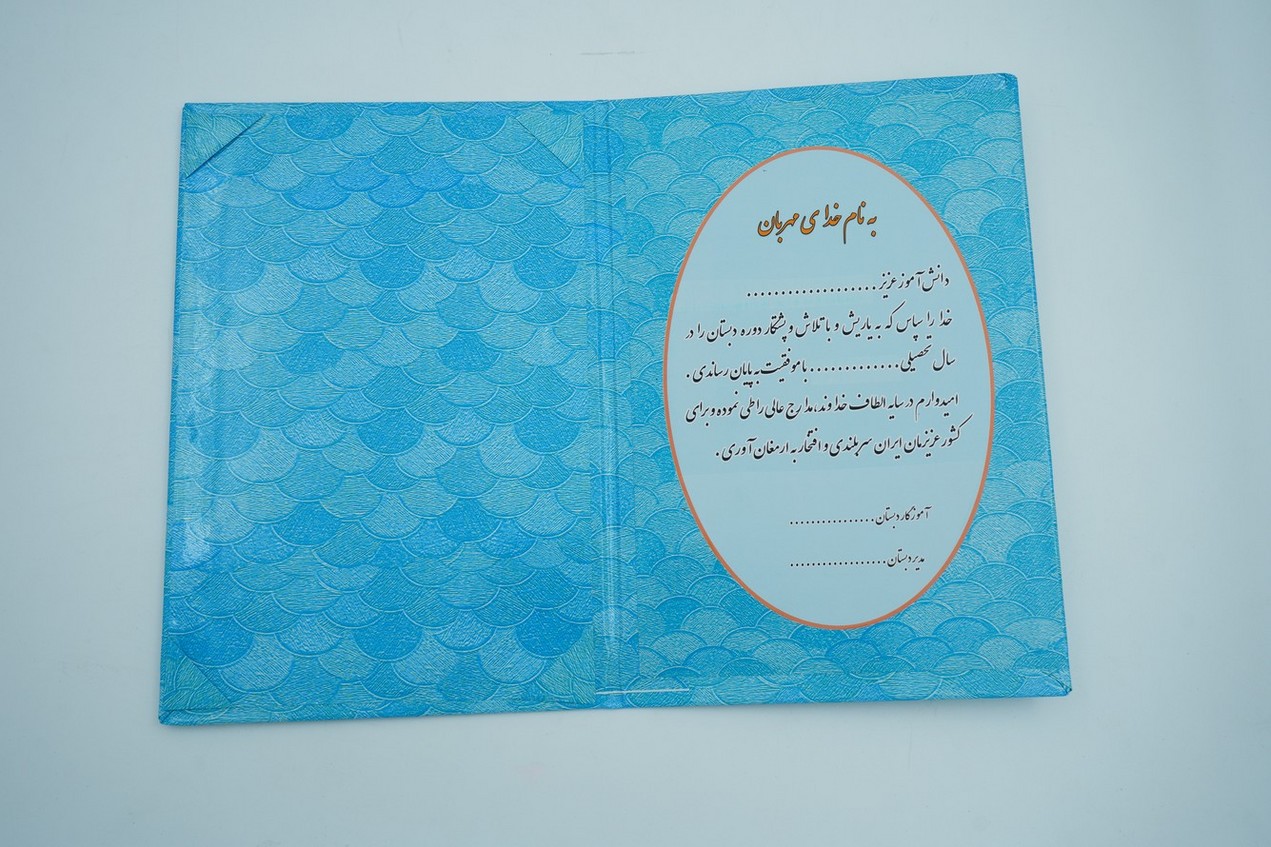 به نام خدای مهربان
دانش آموز عزیز...................
خدا را سپاس که به یاریش و با تلاش و پشتکار دوره دبستان را در
سال تحصیلی.............با موفقیت به پایان رساندی.
امیدوارم در سایه الطاف خداوند،مدارج عالی را طی نموده و برای
کشور عزیزمان ایران سربلندی و افتخار به ارمغان آوری.
آموزگار دبستان................
مدیر دبستان..................